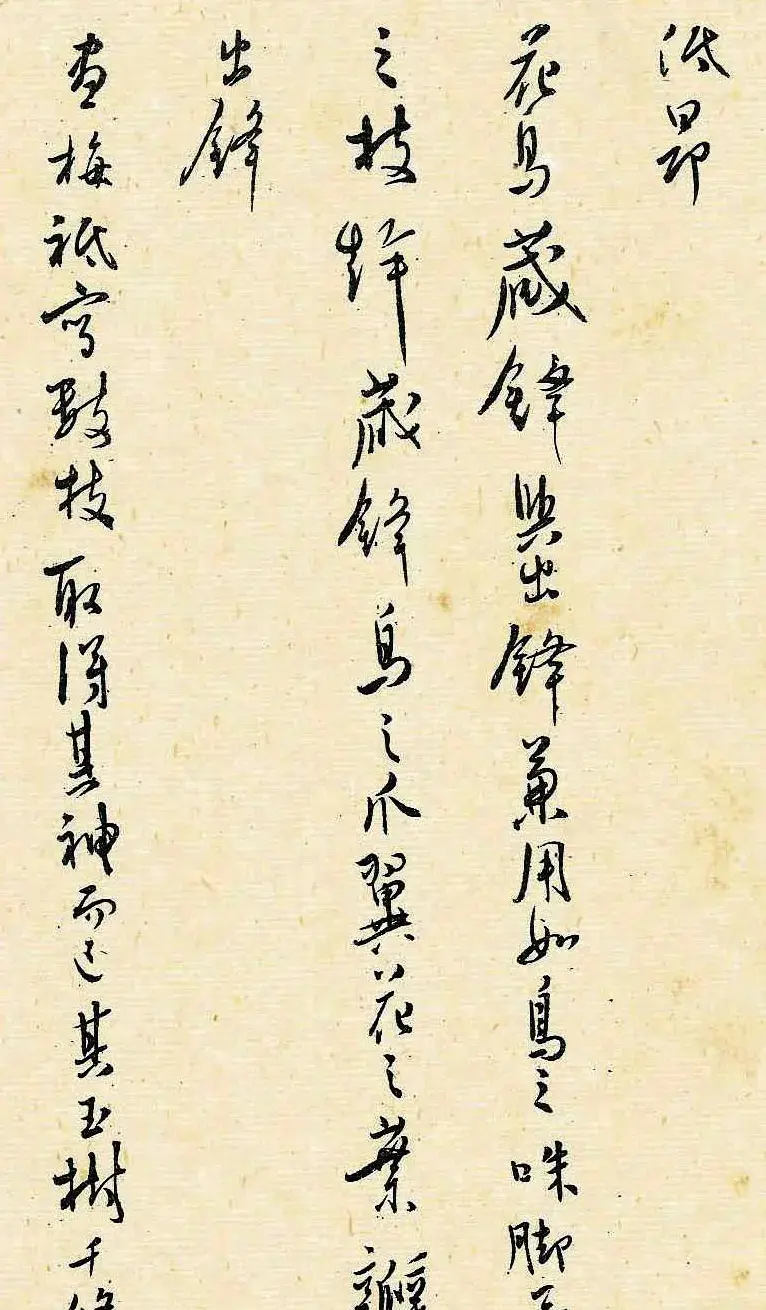 低昂
花鳥藏鋒與出鋒兼用如鳥之咮脚
之枝幹藏鋒鳥之爪翼花之葉瓣
出鋒
畫梅祇寫數枝取得其神而已其玉樹千